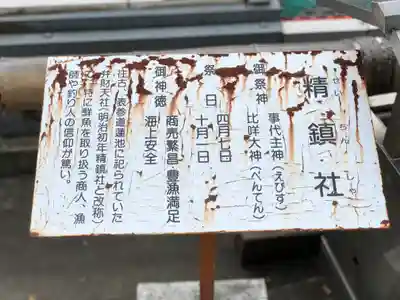 精鎮社
せい ちん しゃ
御祭神 事代主神(えびす)
比咩大神(べんてん)
祭日 四月七日
十月一日
御神徳 商売繁昌・豊漁満足
海上安全
住古、表参道蓮池に祀られていた
弁財天社(明治初年精鎮社と改称)
特に鮮魚を取り扱う商人、漁
師や釣り人の信仰が篤い。